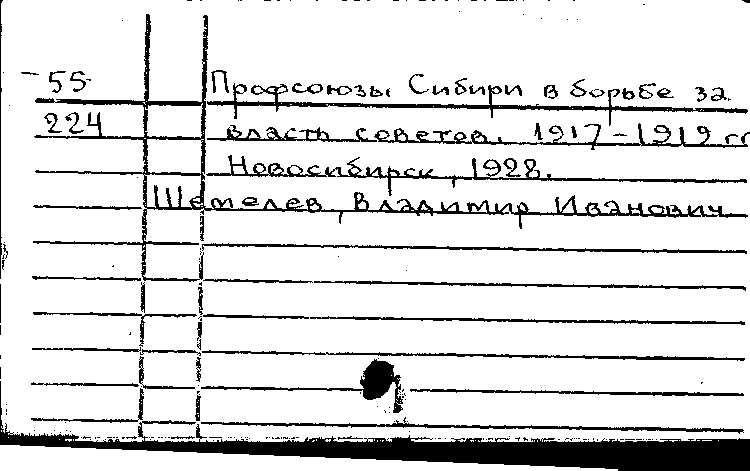 -55 Профсоюзы Сибири в борьбе за
224 власть советов. 1917-1919 гг
Новосибирск, 1928.
Шемелев, Владимир Иванович